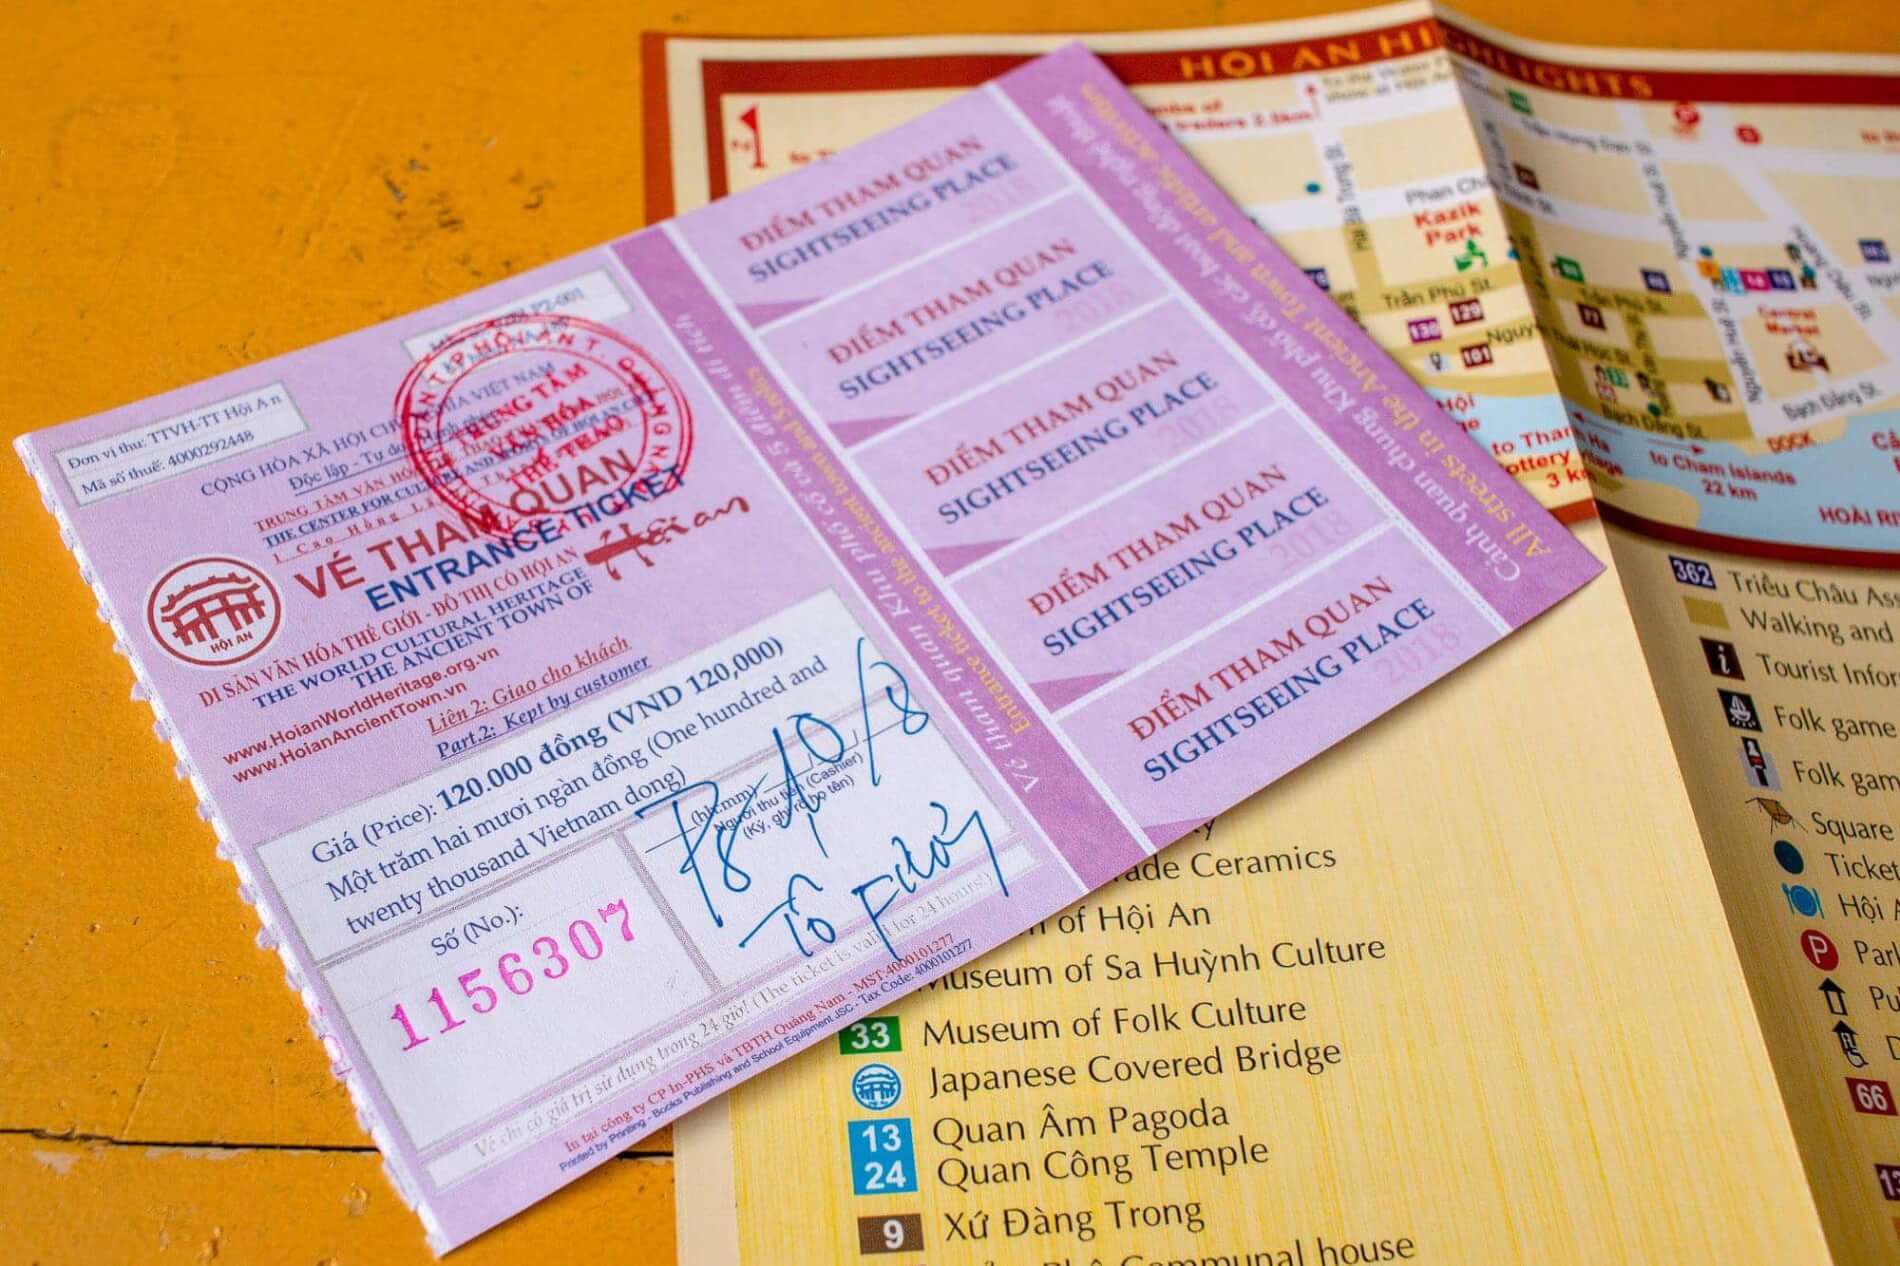 Đơn vị thu: TTVH-TT Hội An
Mã số thuế: 4000292448
CỘNG HÒA XÃ HỘI CHỦ NGHĨA VIỆT NAM
Độc lập - Tự do
TRUNG TÂM VĂN HÓA
THE CENTER FOR CULTURE AND SPORTS OF HOI AN CITY
TRUNG TÂM
VĂN HÓA
THỂ THAO
VÉ THAM QUAN
ENTRANCE TICKET
Hội an
HỘI AN
DI SẢN VĂN HÓA THẾ GIỚI - ĐÔ THỊ CỔ HỘI AN
THE WORLD CULTURAL HERITAGE
THE ANCIENT TOWN OF
www.HoianWorldHeritage.org.vn
www.HoianAncientTown.vn
Liên 2: Giao cho khách
Part.2: Kept by customer
Giá (Price): 120.000 đồng (VND 120,000)
Một trăm hai mươi ngàn đồng (One hundred and
twenty thousand Vietnam dong)
Số (No.):
1156307
(hh:mm)
Người thu tiền (Cashier)
(Ký, ghi rõ họ tên)
10/8
Vé chỉ có giá trị sử dụng trong 24 giờ! (The ticket is valid for 24 hours!)
In tại công ty CP In-PHS và TBTH Quảng Nam - MST:4000101277
Printed by Printing - Books Publishing and School Equipment JSC - Tax Code: 4000101277
Vé tham quan Khu phố cổ và 5 điểm di tích
Entrance ticket to the ancient town and 5 relics
ĐIỂM THAM QUAN
SIGHTSEEING PLACE
2018
ĐIỂM THAM QUAN
SIGHTSEEING PLACE
2018
ĐIỂM THAM QUAN
SIGHTSEEING PLACE
2018
ĐIỂM THAM QUAN
SIGHTSEEING PLACE
2018
ĐIỂM THAM QUAN
SIGHTSEEING PLACE
2018
Cảnh quan chung Khu phố cổ, các hoạt động nghệ thuật
All streets in the Ancient Town and artistic activities
HỘI AN HIGHLIGHTS
traders 2.5km
Kazik
Park
Trần Phú St.
130
129
101
77
Central
Market
Bạch Đằng St.
Bạch Đằng St.
DOCK
to Cham islands
22 km
3 km
362
Walking and
Folk game
Square
Ticket
Hội A
P
66
Ceramics
of Hội An
Museum of Sa Huỳnh Culture
33 Museum of Folk Culture
Japanese Covered Bridge
13 Quan Âm Pagoda
24 Quan Công Temple
9 Xứ Đàng Trong
Communal house